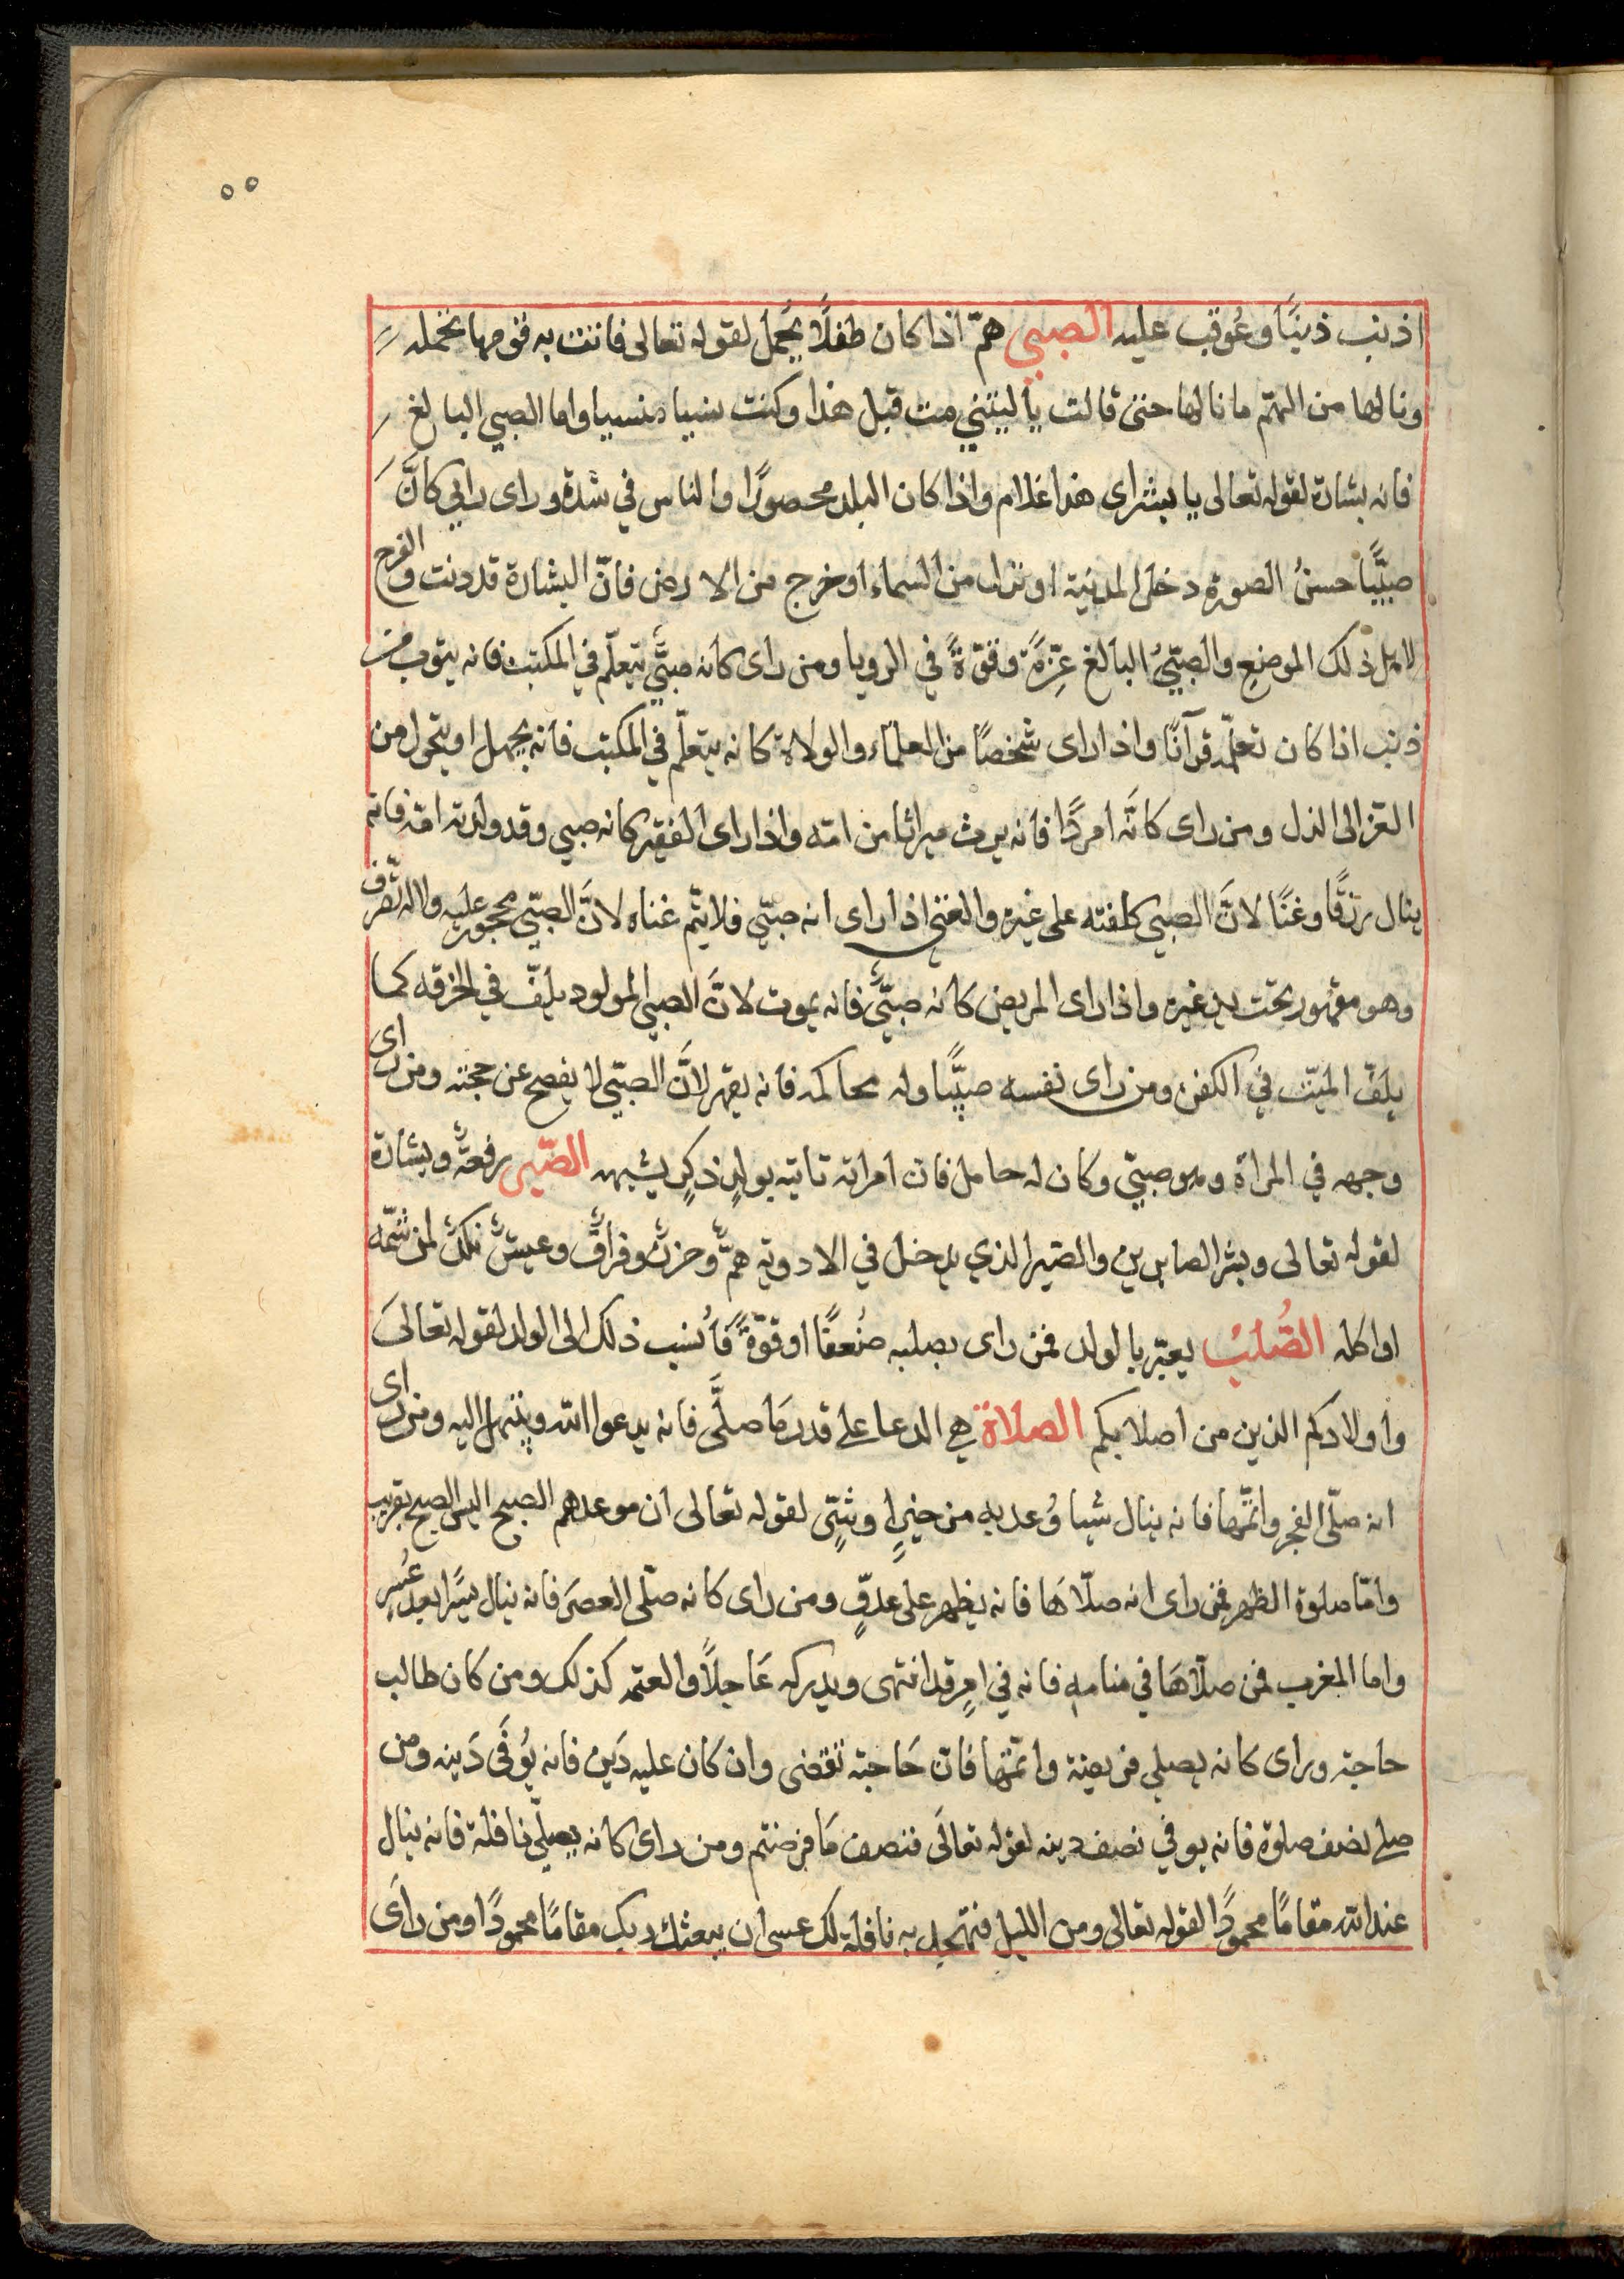 ٥٥
اذنب ذنبًا وعُوقب عليه الصبي همّ اذا كان طفلًا يُحمل لقوله تعالى فاتت به قومها تحمله
ونالها من الهمّ ما نالها حتى قالت ياليتني مت قبل هذا وكنت نسيا منسيا واما الصبي البالغ
فانه بشارة لقوله تعالى يا بشراى هذا غلام واذا كان البلد محصورًا والناس في شدة وراى رايي كانَّ
صبيًّا حسنُ الصورة دخل المدينة او نزل من السماء او خرج من الارض فانّ البشارة قد دنت والفرج
لاهل ذلك الموضع والصبيّ البالغ عِزّةً وقوّةً في الرويا ومن راى كانه صبيٌّ يتعلّم في المكتب فانه يتوب من
ذنب اذا كان تعلّمه قرآنًا واذا راى شخصًا من العلماء والولاة كانه يتعلّم في المكتب فانه يجهل او يتحول من
العز الى الذل ومن راى كانَّه امردًا فانه يرث ميراثا من امّه واذا راى الفقير كانه صبي وقد ولدته امّه فانه
ينال رزقًا وغنًا لانَّ الصبي كلفته على غيره والغني اذا راى انه صبّي فلا يتم غناه لانَّ الصبّي محجور عليه والاله تصّرف
وهو مقهور تحت يد غيره واذا راى المريض كانه صبيٌّ فانه يموت لانَّ الصبي المولود يلفّ في الخرقه كما
يلفّ الميّت في الكفن ومن راى نفسه صبيًّا وله محاكمه فانه يقهر لانَّ الصبّي لا يفصح عن حجته ومن راى
وجهه في المراة وهو صبيّ وكان له حامل فان امراته تاتيه بولدٍ ذكرٍ يشبهه الصّبر رفعةٌ وبشارة
لقوله تعالى وبشر الصابرين والصّبر الذي يدخل في الادوية همٌّ وحزنٌ وفراقٌ وعيشٌ نكدٌ لمن شمّه
او اكله الصُّلبُ يعبّر بالولد فمن راى بصلبه ضُعفًا او قوّةً فاُنسب ذلك الى الولد لقوله تعالىَ
واولادكم الذين من اصلابكم الصلاة هي الدعا على قدر مَا صلَّى فانه يدعوا الله ويبتهل اليه ومن راى
انه صلّى الفجر واتمَّها فانه ينال شيا وُعد به من خيرٍ او شرٍّ لقوله تعالى ان موعدهم الصبح اليس الصبح بقريب
وامّا صلوة الظهر فمن راى انه صلّاهَا فانه يظهر على عدوٍّ ومن راى كانه صلّى العصَر فانه ينال يسًرا بعد عُسرٍ
واما المغرب فمن صلّاهَا في منامه فانه في امرٍ قد انتهى ويدركه عَاجلًا والعتمه كذلك ومن كان طالب
حاجة وراى كانه يصلي فريضة واتمّها فانّ حَاجته تقضى وان كان عليه دَين فانه يُوفَى دَينه ومن
صلى نصف صلوة فانه يوفي نصف دينه لقوله تعالَى فنصف مَا فرضتم ومن راى كانه يصلّي نافلة فانه ينال
عند الله مقامًا محمودًا لقوله تعالى ومن الليل فتهجد به نافلة لك عسى ان يبعثك ربك مقامًا محمودًا ومن راَى